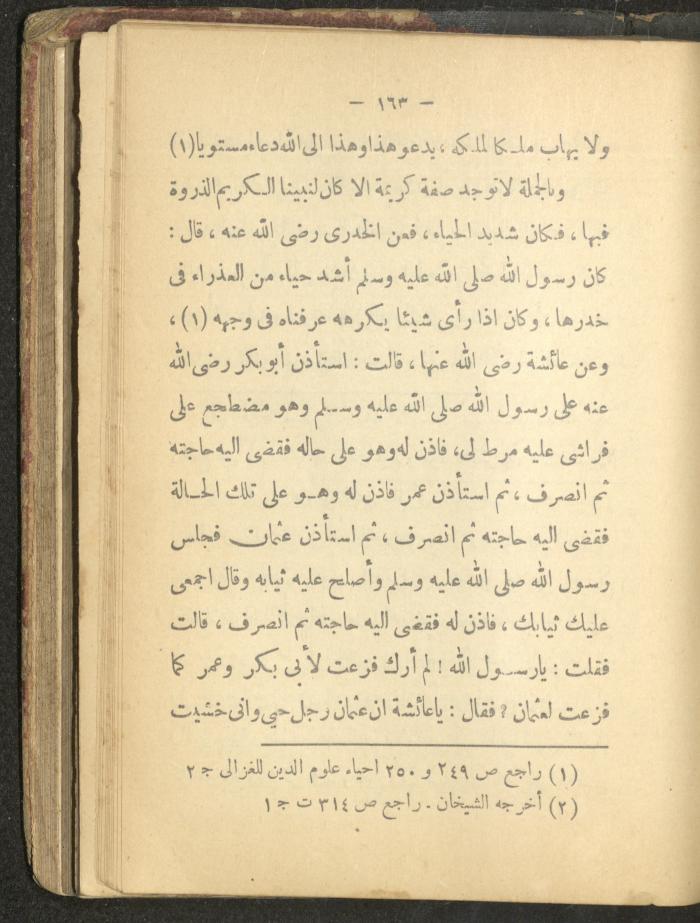 — ١٦٣ —
ولا يهاب ملكا لملكه ، يدعو هذا وهذا الى الله دعاء مستويا (١)
وبالجملة لاتوجد صفة كريمة الا كان لنبينا الكريم الذروة
فيها ، فكان شديد الحياء ، فعن الخدرى رضى الله عنه ، قال :
كان رسول الله صلى الله عليه وسلم أشد حياء من العذراء فى
خدرها ، وكان اذا رأى شيئا يكرهه عرفناه فى وجهه (١) ،
وعن عائشة رضى الله عنها ، قالت : استأذن أبو بكر رضى الله
عنه على رسول الله صلى الله عليه وسلم وهو مضطجع على
فراشى عليه مرط لى، فاذن له وهو على حاله فقضى اليه حاجته
ثم انصرف ، ثم استأذن عمر فاذن له وهو على تلك الحالة
فقضى اليه حاجته ثم انصرف ، ثم استأذن عثمان فجلس
رسول الله صلى الله عليه وسلم وأصلح عليه ثيابه وقال اجمعى
عليك ثيابك ، فاذن له فقضى اليه حاجته ثم انصرف ، قالت
فقلت : يارسول الله ! لم أرك فزعت لأبى بكر وعمر كما
فزعت لعثمان ? فقال : ياعائشة ان عثمان رجل حيي وانى خشيت
(١) راجع ص ٢٤٩ و ٢٥٠ احياء علوم الدين للغزالى ج ٢
(٢) أخرجه الشيخان . راجع ص ٣١٤ ت ج ١